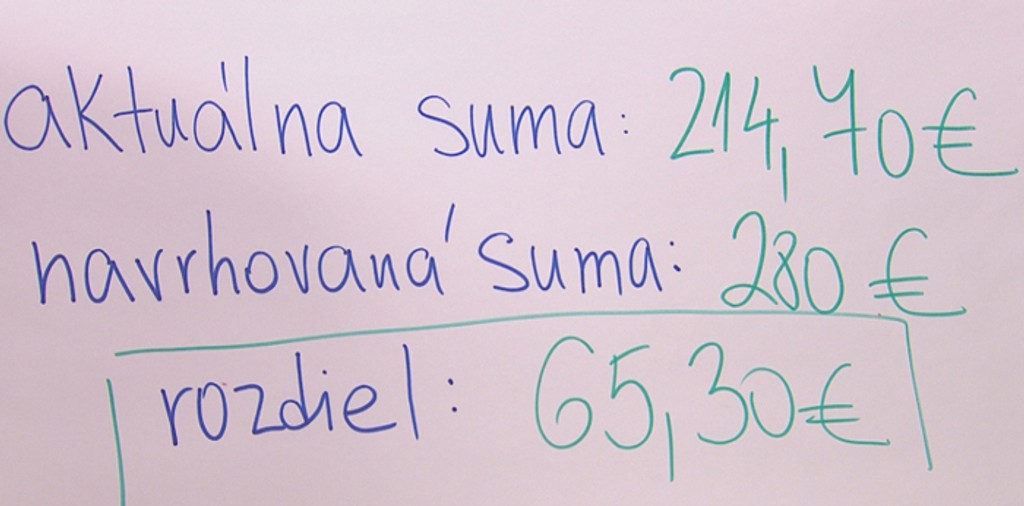 aktuálna suma: 214,70€
navrhovaná suma: 280 €
rozdiel: 65,30€